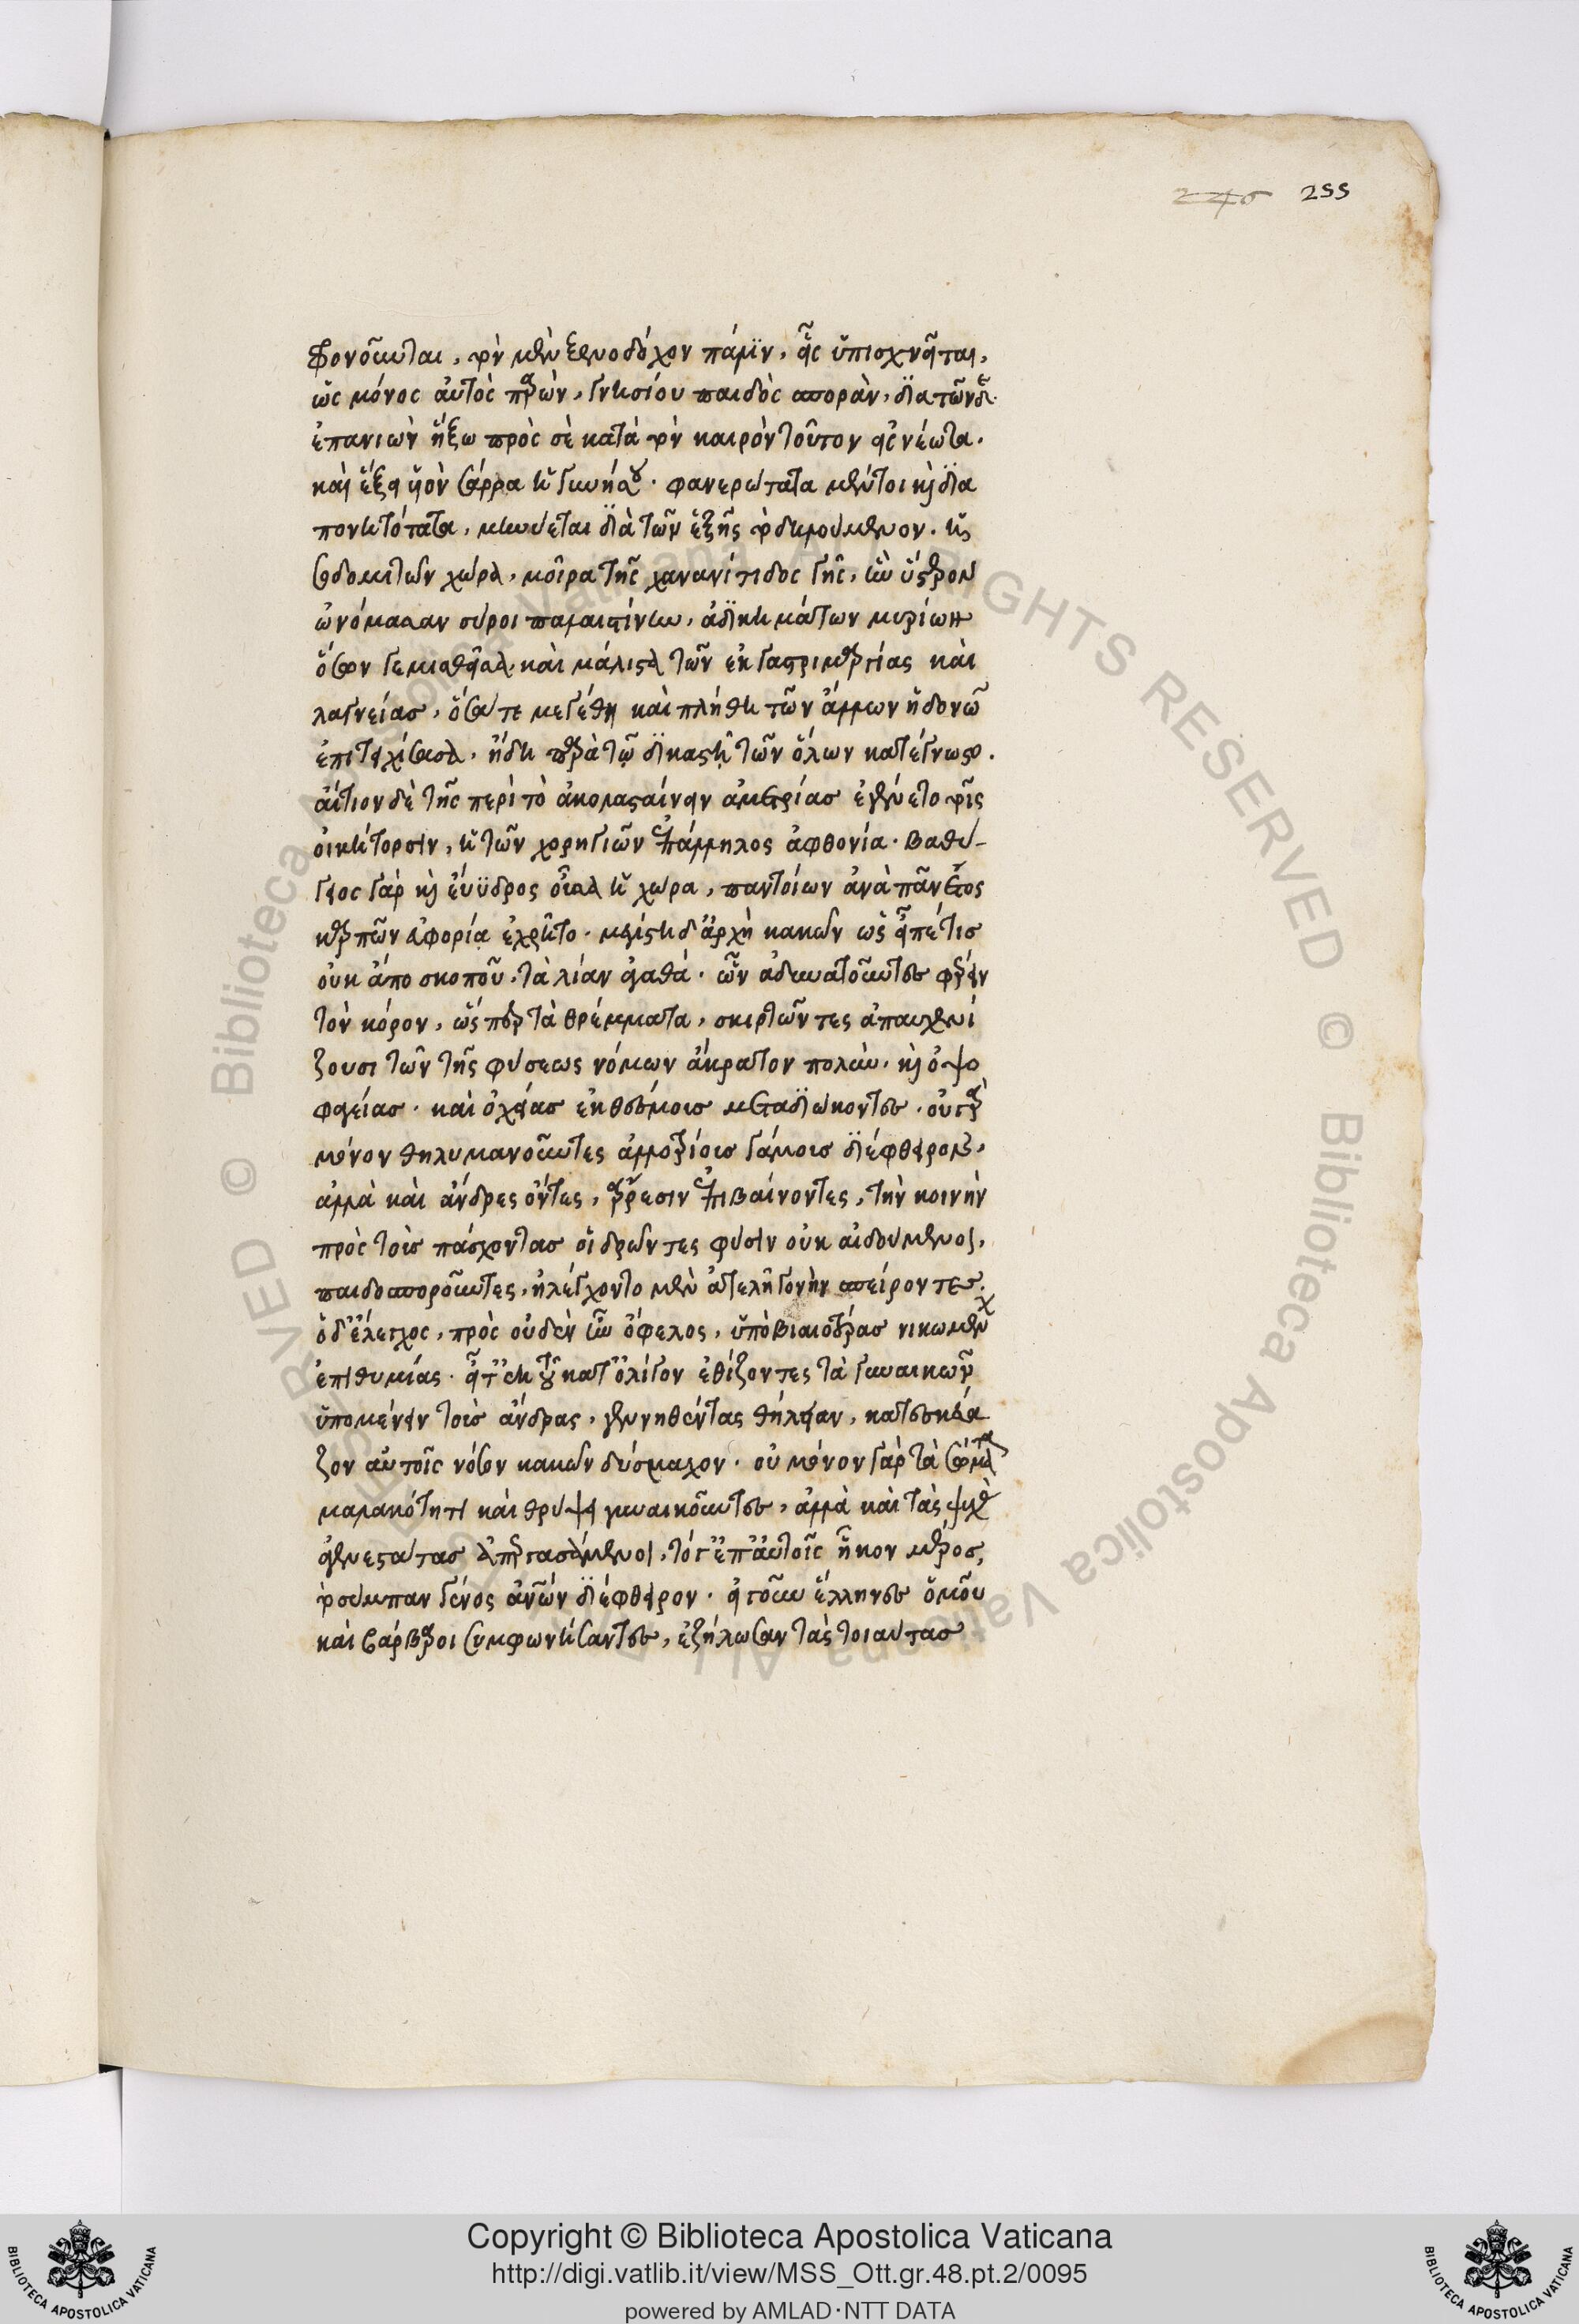 255
φρονοῦνται, τὸν μὲν ξενοδόχον πάλιν, εἷς ὑπισχνεῖται,
ὡς μόνος αὐτὸς παρὼν, γνησίου παιδὸς σπορὰν, διὰ τῶνδε
ἐπανιὼν ἥξω πρὸς σὲ κατὰ τὸν καιρὸν τοῦτον εἰς νέωτα.
καὶ ἕξει υἱὸν σάρρα ἡ γυνή σου. φανερώτατα μέντοι καὶ δια
πονητότατα, μηνύεται διὰ τῶν ἑξῆς τὸ δηλούμενον. ἡ
σοδομιτῶν χώρα, μοῖρα τῆς χανανίτιδος γῆς, ἣν ὕστερον
ὠνόμασαν σύροι παλαιστίνην, ἀδικημάτων μυρίων
ὅσων γεμισθεῖσα, καὶ μάλιστα τῶν ἐκ γαστριμαργίας καὶ
λαγνείας, ὅσα τε μεγέθη καὶ πλήθη τῶν ἄλλων ἡδονῶν
ἐπιτειχίσασα, ἤδη παρὰ τῷ δικαστῇ τῶν ὅλων κατέγνωστο.
αἴτιον δὲ τῆς περὶ τὸ ἀκολασταίνειν ἀμετρίας ἐγένετο τοῖς
οἰκήτορσιν, ἡ τῶν χορηγιῶν ἐπάλληλος ἀφθονία. βαθύ-
γειος γὰρ καὶ εὔυδρος οὖσα ἡ χώρα, παντοίων ἀνὰ πᾶν ἔτος
καρπῶν εὐφορία ἐχρῆτο. μεγίστη δ' ἀρχὴ κακῶν ὡς εἶπέ τις
οὐκ ἀπὸ σκοποῦ, τὰ λίαν ἀγαθά. ὧν ἀδυνατοῦντες φέρειν
τὸν κόρον, ὥσπερ τὰ θρέμματα, σκιρτῶντες ἀπαυχενί
ζουσι τῶν τῆς φύσεως νόμων ἄκρατον πολὺν, καὶ ὀψο
φαγίας. καὶ ὀχείας ἐκθέσμους μεταδιώκοντες. οὐ γὰρ
μόνον θηλυμανοῦντες ἀλλοτρίοις γάμοις διέφθειρον,
ἀλλὰ καὶ ἄνδρες ὄντες, ἄρρεσιν ἐπιβαίνοντες, τὴν κοινὴν
πρὸς τοὺς πάσχοντας οἱ δρῶντες φύσιν οὐκ αἰδούμενοι,
παιδοσποροῦντες, ἠλέγχοντο μὲν ἀτελῆ γονὴν σπείροντες.
ὁ δ' ἔλεγχος, πρὸς οὐδὲν ἦν ὄφελος, ὑπὸ βιαιοτέρας νικωμένων
ἐπιθυμίας. εἶτ' ἐκ τοῦ κατ' ὀλίγον ἐθίζοντες τὰ γυναικῶν
ὑπομένειν τοὺς ἄνδρας, γεννηθέντας θήλειαν, κατεσκεύα
ζον αὐτοῖς νόσον κακῶν δύσμαχον. οὐ μόνον γὰρ τὰ σώματα
μαλακότητι καὶ θρύψει γυναικοῦντες, ἀλλὰ καὶ τὰς ψυχὰς
ἀγενεστάτας ἀπεργασάμενοι, τό γ' ἐπ' αὐτοῖς ἧκον μέρος,
τὸ σύμπαν γένος ἀνθρώπων διέφθειρον. εἰ γοῦν ἕλληνες ὁμοῦ
καὶ βάρβαροι συμφωνήσαντες, ἐζήλωσαν τὰς τοιαύτας
Copyright © Biblioteca Apostolica Vaticana
http://digi.vatlib.it/view/MSS_Ott.gr.48.pt.2/0095
powered by AMLAD·NTT DATA